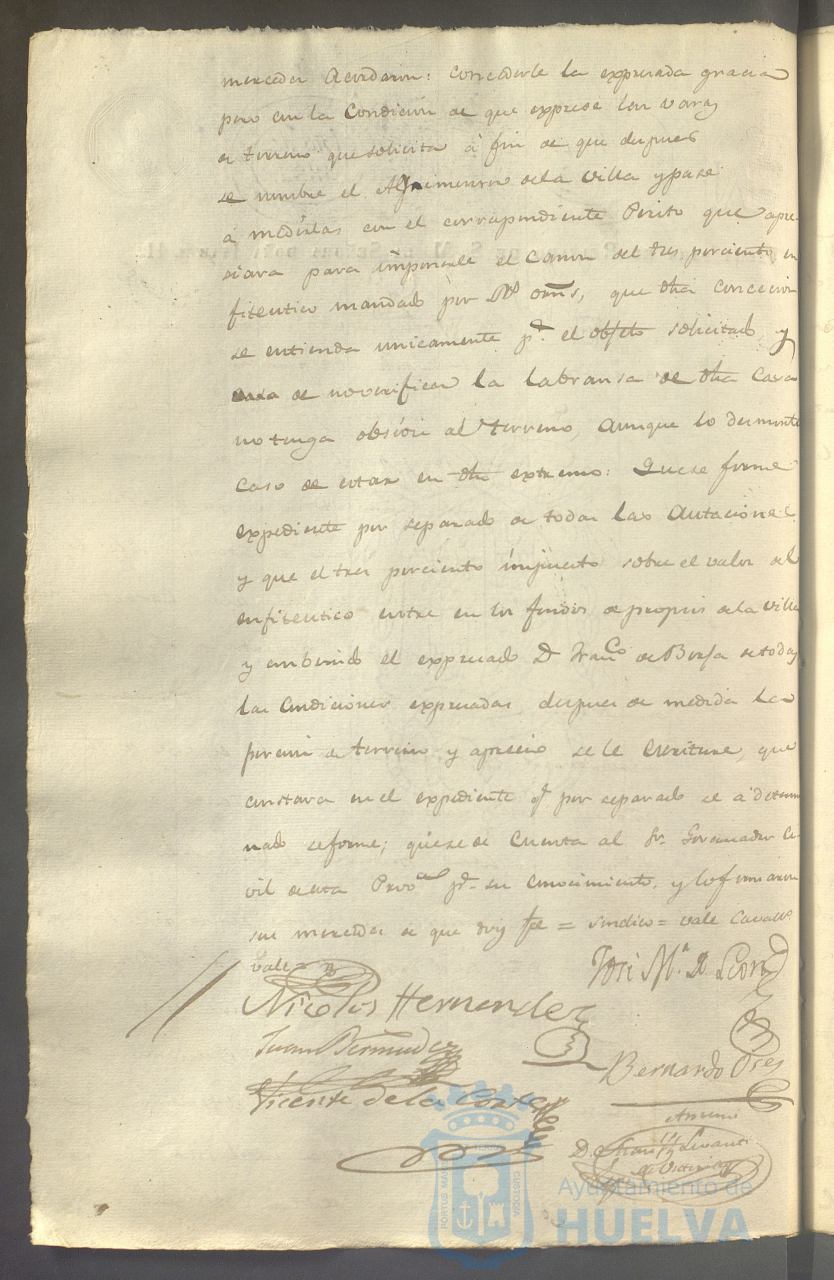 mercedes Acordaron: concederle la expresada gracia
pero con la Condicion de que exprese las varas
de terreno que solicita á fin de que despues
se nombre el Agrimensor de la villa y pase
á medirlas con el correspondiente Perito que apre-
siara para imponerle el canon del tres porciento en
fiteutico mandado por Rs orns, que dha concecion
se entienda unicamente pa. el objeto solicitado, y
de no verificar la labransa de dha Casa
no tenga obsion al terreno, aunque lo desmonte
caso de estar en dho extremo: Que se forme
expediente por separado de todas las Autaciones
y que el tres porciento impuesto sobre el valor del
enfiteutico entre en los fondos de propios de la villa
y combenido el expresado Dn Franco de Borja de todas
las Condiciones expresadas, despues de medida la
porcion de terreno y apresio se le Escriture, que
constara en el expediente qe por separado se á determi
nado se forme; que se de Cuenta al Sr. Governador Ci-
vil de esta Provca pa. su conocimiento, y lo firmaron
sus mercedes de que doy fe = sindico = vale Cavallo
vale
José Ma. D. Leon
Nicolas Hernandez
Juan Bermudez
Bernardo
Vicente de la Corte
Antemi
D.
PORTUS MARIS
CUSTODIA
Ayuntamiento de
HUELVA